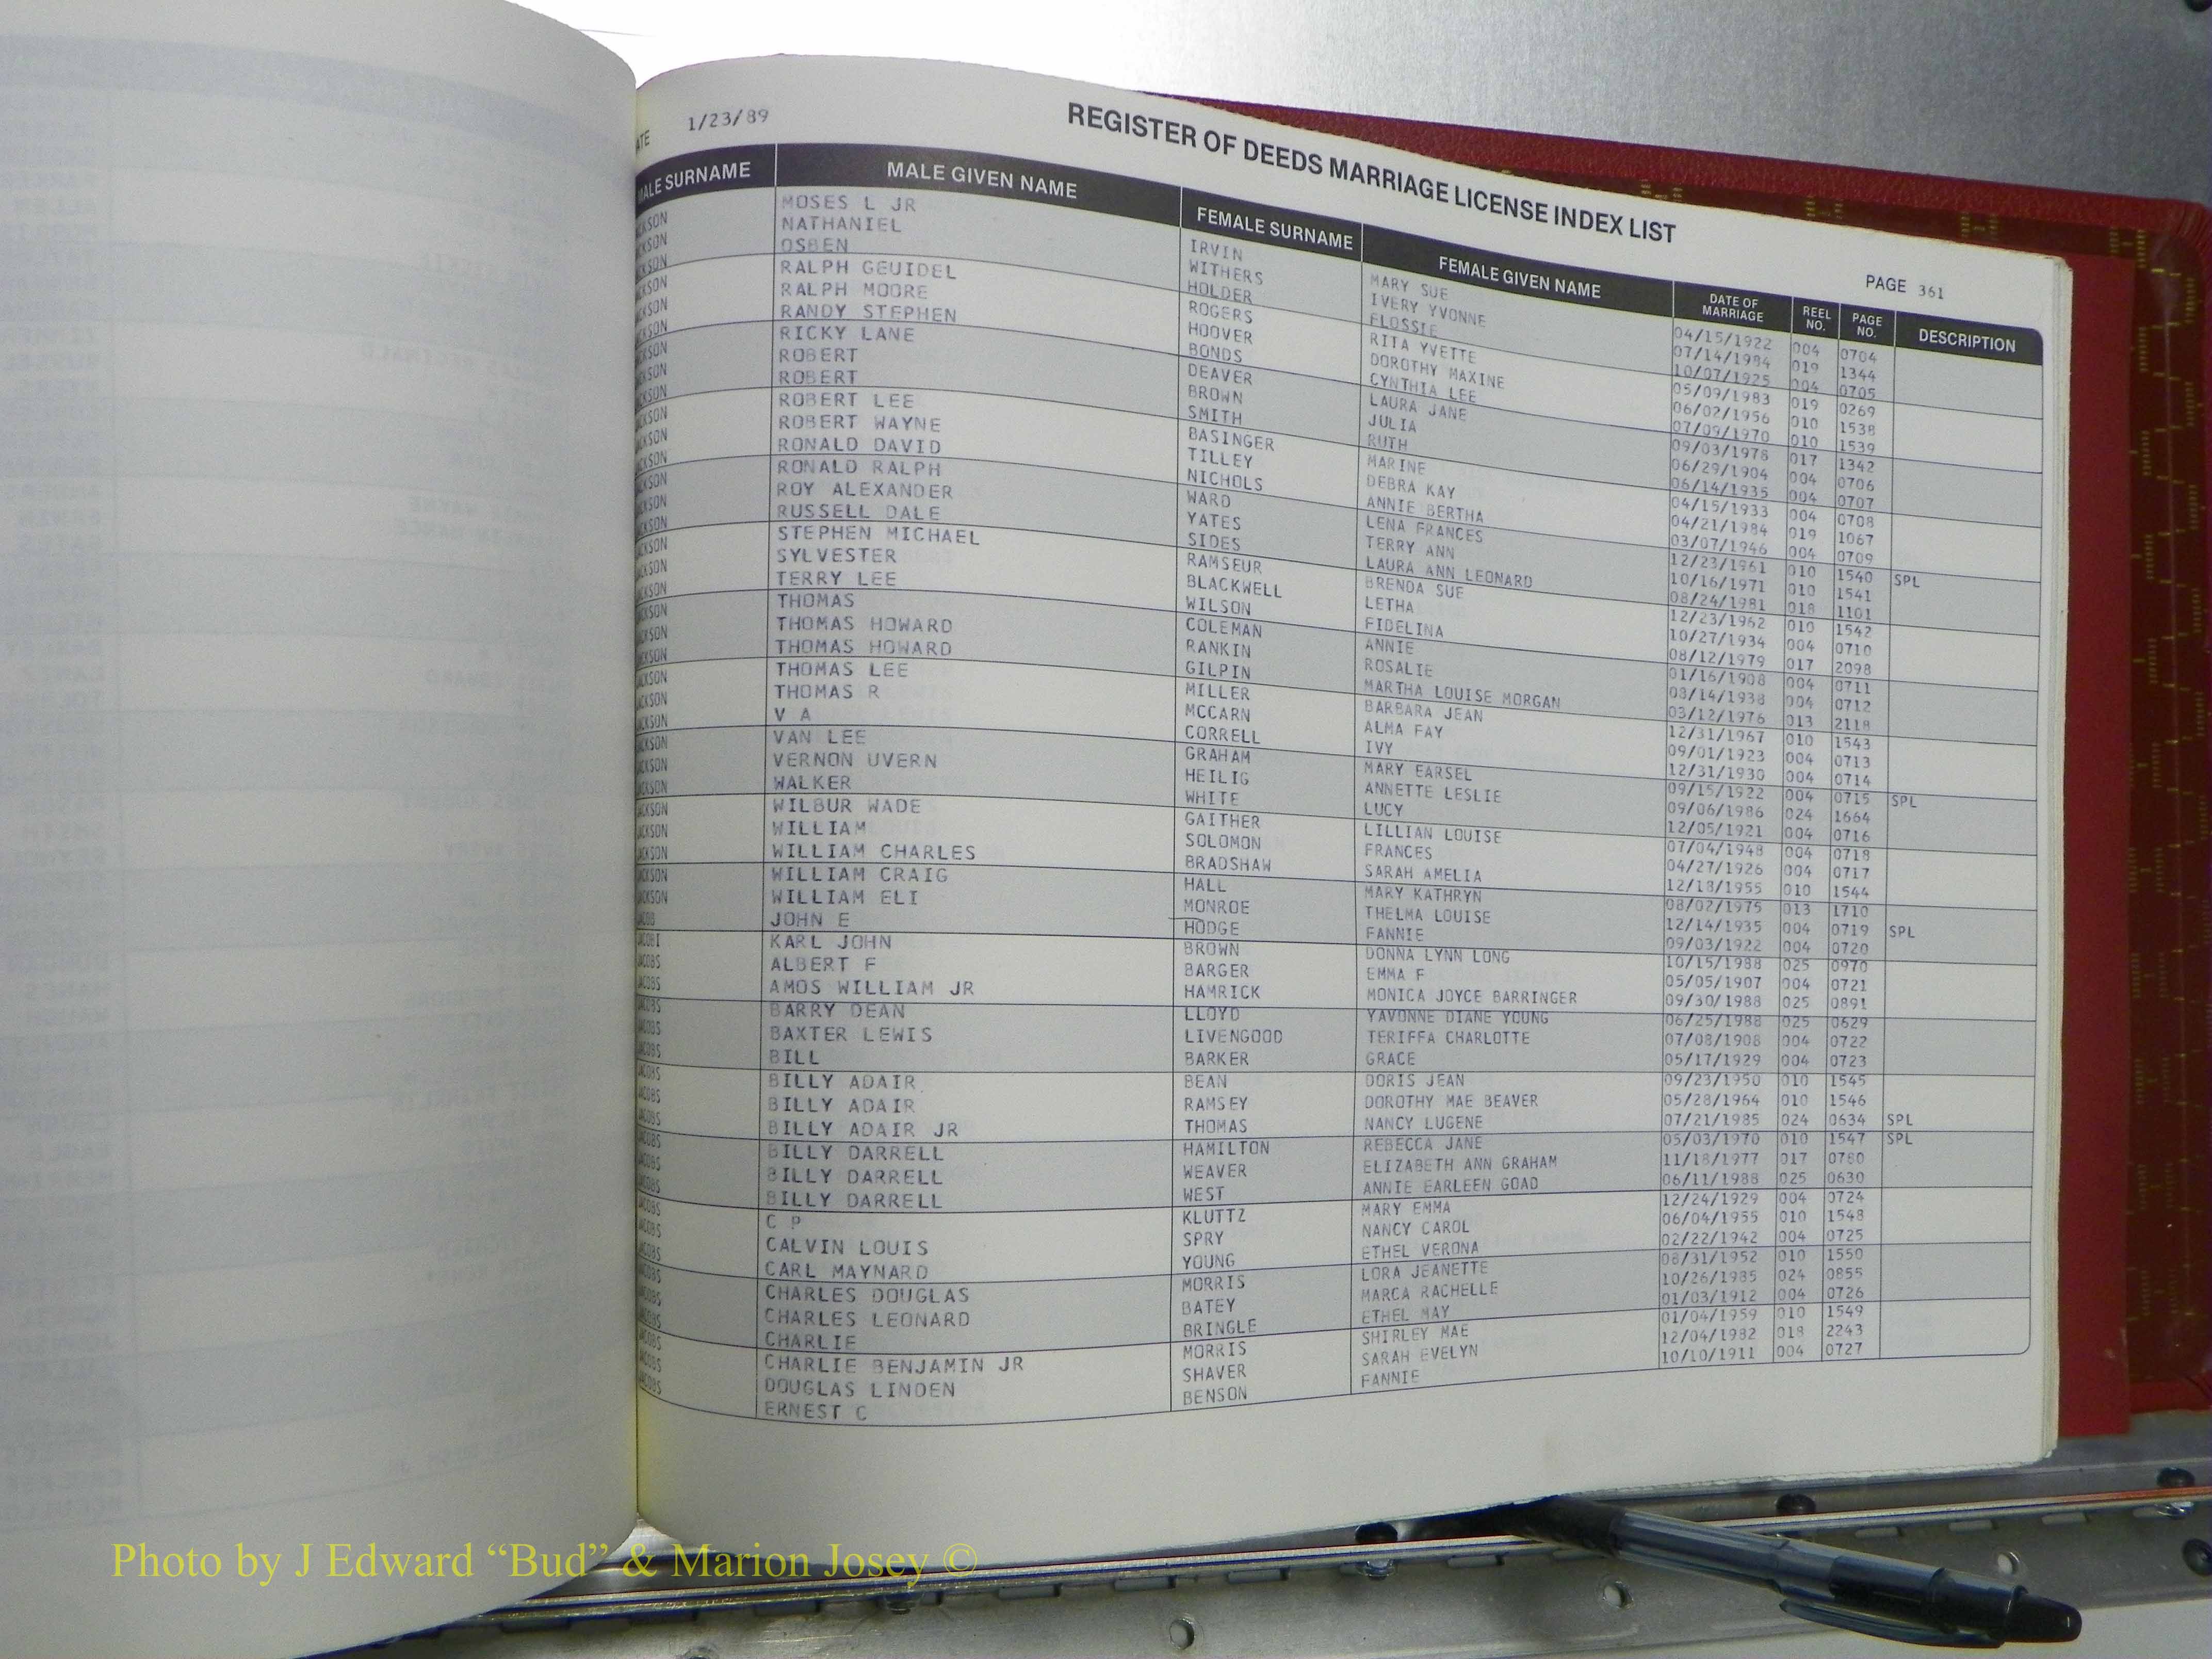 ATE 1/23/89
REGISTER OF DEEDS MARRIAGE LICENSE INDEX LIST
PAGE 361
MALE SURNAME MALE GIVEN NAME FEMALE SURNAME FEMALE GIVEN NAME DATE OF MARRIAGE REEL NO. PAGE NO. DESCRIPTION
ACKSON MOSES L JR IRVIN MARY SUE 04/15/1922 004 0704
ACKSON NATHANIEL WITHERS IVERY YVONNE 07/14/1984 019 1344
ACKSON OSBEN HOLDER FLOSSIE 10/07/1925 004 0705
ACKSON RALPH GEUIDEL ROGERS RITA YVETTE 05/09/1983 019 0269
ACKSON RALPH MOORE HOOVER DOROTHY MAXINE 06/02/1956 010 1538
ACKSON RANDY STEPHEN BONDS CYNTHIA LEE 07/09/1970 010 1539
ACKSON RICKY LANE DEAVER LAURA JANE 09/03/1978 017 1342
ACKSON ROBERT BROWN JULIA 06/29/1904 004 0706
ACKSON ROBERT SMITH RUTH 06/14/1935 004 0707
ACKSON ROBERT LEE BASINGER MARINE 04/15/1933 004 0708
ACKSON ROBERT WAYNE TILLEY DEBRA KAY 04/21/1984 019 1067
ACKSON RONALD DAVID NICHOLS ANNIE BERTHA 03/07/1946 004 0709
ACKSON RONALD RALPH WARD LENA FRANCES 12/23/1961 010 1540 SPL
ACKSON ROY ALEXANDER YATES TERRY ANN 10/16/1971 010 1541
ACKSON RUSSELL DALE SIDES LAURA ANN LEONARD 08/24/1981 018 1101
ACKSON STEPHEN MICHAEL RAMSEUR BRENDA SUE 12/23/1962 010 1542
ACKSON SYLVESTER BLACKWELL LETHA 10/27/1934 004 0710
ACKSON TERRY LEE WILSON FIDELINA 08/12/1979 017 2098
ACKSON THOMAS COLEMAN ANNIE 01/16/1908 004 0711
ACKSON THOMAS HOWARD RANKIN ROSALIE 08/14/1938 004 0712
ACKSON THOMAS HOWARD GILPIN MARTHA LOUISE MORGAN 03/12/1976 013 2118
ACKSON THOMAS LEE MILLER BARBARA JEAN 12/31/1967 010 1543
ACKSON THOMAS R MCCARN ALMA FAY 09/01/1923 004 0713
ACKSON V A CORRELL IVY 12/31/1930 004 0714
ACKSON VAN LEE GRAHAM MARY EARSEL 09/15/1922 004 0715 SPL
ACKSON VERNON UVERN HEILIG ANNETTE LESLIE 09/06/1986 024 1664
ACKSON WALKER WHITE LUCY 12/05/1921 004 0716
ACKSON WILBUR WADE GAITHER LILLIAN LOUISE 07/04/1948 004 0718
ACKSON WILLIAM SOLOMON FRANCES 04/27/1926 004 0717
ACKSON WILLIAM CHARLES BRADSHAW SARAH AMELIA 12/18/1955 010 1544
ACKSON WILLIAM CRAIG HALL MARY KATHRYN 08/02/1975 013 1710
ACKSON WILLIAM ELI MONROE THELMA LOUISE 12/14/1935 004 0719 SPL
ACOB JOHN E HODGE FANNIE 09/03/1922 004 0720
ACOBI KARL JOHN BROWN DONNA LYNN LONG 10/15/1988 025 0970
ACOBS ALBERT F BARGER EMMA F 05/05/1907 004 0721
ACOBS AMOS WILLIAM JR HAMRICK MONICA JOYCE BARRINGER 09/30/1988 025 0891
ACOBS BARRY DEAN LLOYD YAVONNE DIANE YOUNG 06/25/1988 025 0629
ACOBS BAXTER LEWIS LIVENGOOD TERIFFA CHARLOTTE 07/08/1908 004 0722
ACOBS BILL BARKER GRACE 05/17/1929 004 0723
ACOBS BILLY ADAIR BEAN DORIS JEAN 09/23/1950 010 1545
ACOBS BILLY ADAIR RAMSEY DOROTHY MAE BEAVER 05/28/1964 010 1546
ACOBS BILLY ADAIR JR THOMAS NANCY LUGENE 07/21/1985 024 0634 SPL
ACOBS BILLY DARRELL HAMILTON REBECCA JANE 05/03/1970 010 1547 SPL
ACOBS BILLY DARRELL WEAVER ELIZABETH ANN GRAHAM 11/18/1977 017 0780
ACOBS BILLY DARRELL WEST ANNIE EARLEEN GOAD 06/11/1988 025 0630
ACOBS C P KLUTTZ MARY EMMA 12/24/1929 004 0724
ACOBS CALVIN LOUIS SPRY NANCY CAROL 06/04/1955 010 1548
ACOBS CARL MAYNARD YOUNG ETHEL VERONA 02/22/1942 004 0725
ACOBS CHARLES DOUGLAS MORRIS LORA JEANETTE 08/31/1952 010 1550
ACOBS CHARLES LEONARD BATEY MARCA RACHELLE 10/26/1985 024 0855
ACOBS CHARLIE BRINGLE ETHEL MAY 01/03/1912 004 0726
ACOBS CHARLIE BENJAMIN JR MORRIS SHIRLEY MAE 01/04/1959 010 1549
ACOBS DOUGLAS LINDEN SHAVER SARAH EVELYN 12/04/1982 018 2243
ACOBS ERNEST C BENSON FANNIE 10/10/1911 004 0727
Photo by J Edward “Bud” & Marion Josey ©